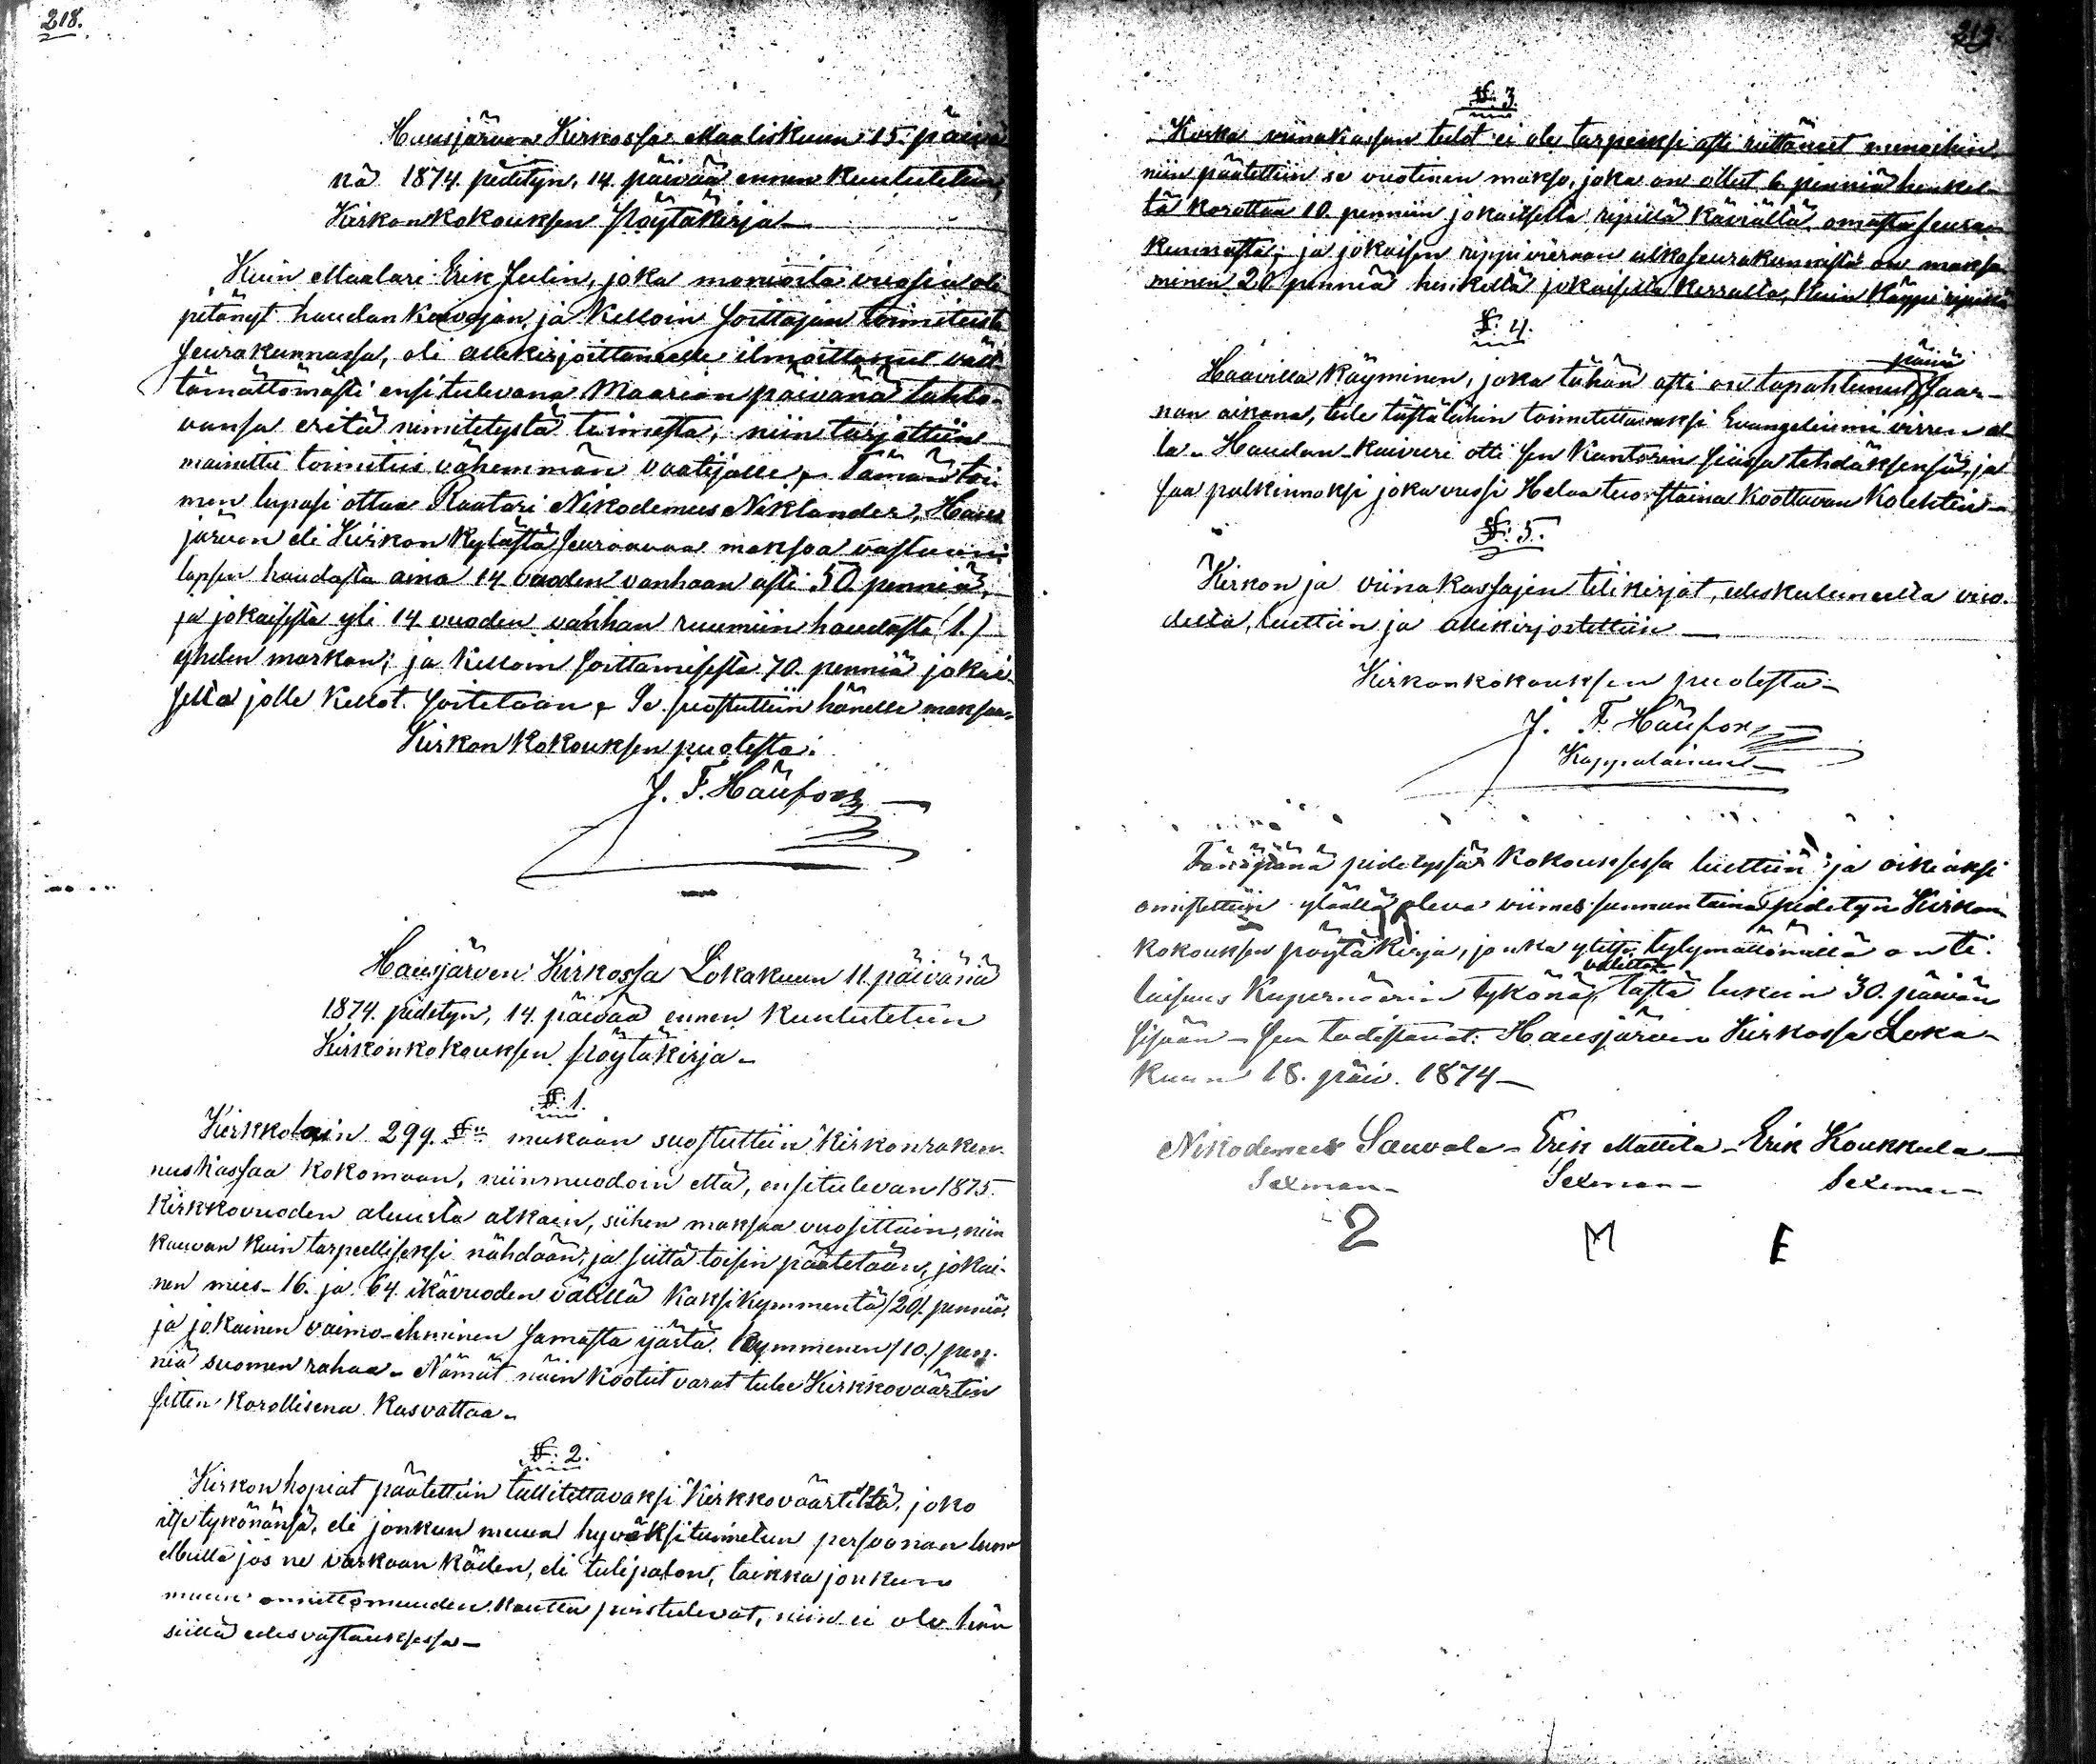 218.
Hausjärven Kirkossa Maaliskuun 15. päivä
nä 1874. pidetyn, 14. päivää ennen kuulutetun,
Kirkonkokouksen Pöytäkirja —
Kuin Maalari Erik Julin, joka moniaita vuosia oli
pitänyt haudan kaivajan, ja Kelloin soittajan toimitusta
seurakunnassa, oli allekirjoittaneelle ilmoittanut vält-
tämättömästi ensitulevana Maarian päivänä tahto-
vansa eritä nimitetystä toimesta, niin tarjottiin
mainittu toimitus vähemmän vaatijalle. Tämän toi
men lupasi ottaa Raatari Nikodemus Niklander, Haus
järven eli Kirkon kylästä seuraavaa maksoa vastaan:
lapsen haudasta aina 14 vuoden vanhaan asti 50. penniä,
ja jokaisesta yli 14 vuoden vanhan ruumiin haudasta (1.)
yhden markan; ja Kelloin soittamisesta 70. penniä jokai-
selta jolle Kellot soitetaan. Se suostuttiin hänelle maksaa.
Kirkon Kokouksen puolesta:
J. F. Häufors —
Hausjärven Kirkossa Lokakuun 11. päivänä
1874. pidetyn, 14. päivää ennen kuulutetun
Kirkonkokouksen Pöytäkirja —
§. 1.
Kirkkolain 299. §:n mukaan suostuttiin Kirkonraken-
nuskassaa kokomaan, niinmuodoin että, ensitulevan 1875.
Kirkkovuoden alusta alkain, siihen maksaa vuosittain, niin
kauvan kuin tarpeelliseksi nähdään, ja siitä toisin päätetään, jokai-
nen mies- 16. ja 64. ikävuoden välillä kaksikymmentä /20/. penniä,
ja jokainen vaimo-ihminen samasta ijästä kymmenen /10./ pen-
niä suomen rahaa. Nämät näin kootut varat tulee Kirkkoväärtin
sitten korollisena kasvattaa.
§. 2.
Kirkon hopiat päätettiin tallitettavaksi Kirkkoväärtiltä, joko
itse tykönänsä, eli jonkun muun hyväksi tunnetun persoonan luona
Mutta jos ne varkaan käden, eli tulipalon, taikka jonkun
muun onnettomuuden kautta poistulevat, niin ei ole hän
siitä edesvastauksessa —
219.
§. 3.
Koska viinakassan tulot ei ole tarpeeksi asti riittäneet menoihin,
niin päätettiin se vuotinen makso, joka on ollut 6 penniä henkel-
tä korottaa 10. penniin jokaiselta ripillä käviältä omasta seura-
kunnasta; ja jokaisen rippivieraan ulkoseurakunnista on maksa-
minen 20. penniä henkeltä jokaiselta kerralta, kuin käypi ripillä
§. 4.
Haavilla käyminen, joka tähän asti on tapahtunut päivä saar-
nan aikana, tule tästälähin toimitettavaksi Evangeliumi virren al-
la. Haudan-kaivuri otti sen Kantorin siassa tehdäksensä, ja
saa palkinnoksi joka vuosi Helaa tuorstaina koottavan Kolehtin —
§. 5.
Kirkon ja viinakassajen tilikirjat, edeskuluneelta vuo-
delta, luettiin ja allekirjoitettiin —
Kirkonkokouksen puolesta —
J. F. Häufors —
Kappalainen —
Tänäpänä pidetyssä Kokouksessa luettiin ja oikiaksi
omistettiin ylläällä oleva viimes sunnuntaina pidetyn Kirkon
kokouksen pöytäkirja, jonka ylitse tytymättömillä on ti-
laisuus Kupernöörin tykönä, valittaa tästä lukein 30. päivän
sisään — sen todistavat: Hausjärven Kirkossa Loka-
kuun 18. päiv. 1874 —
Nikodemus Sauvala — Erik Mattila — Erik Koukkula —
Sexman — Sexman — Sexman —
2 M E